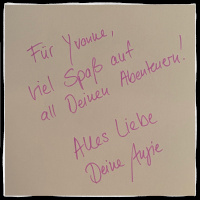 Für Yvonne,
viel Spaß auf
all Deinen Abenteuern!
Alles Liebe
Deine Anjie